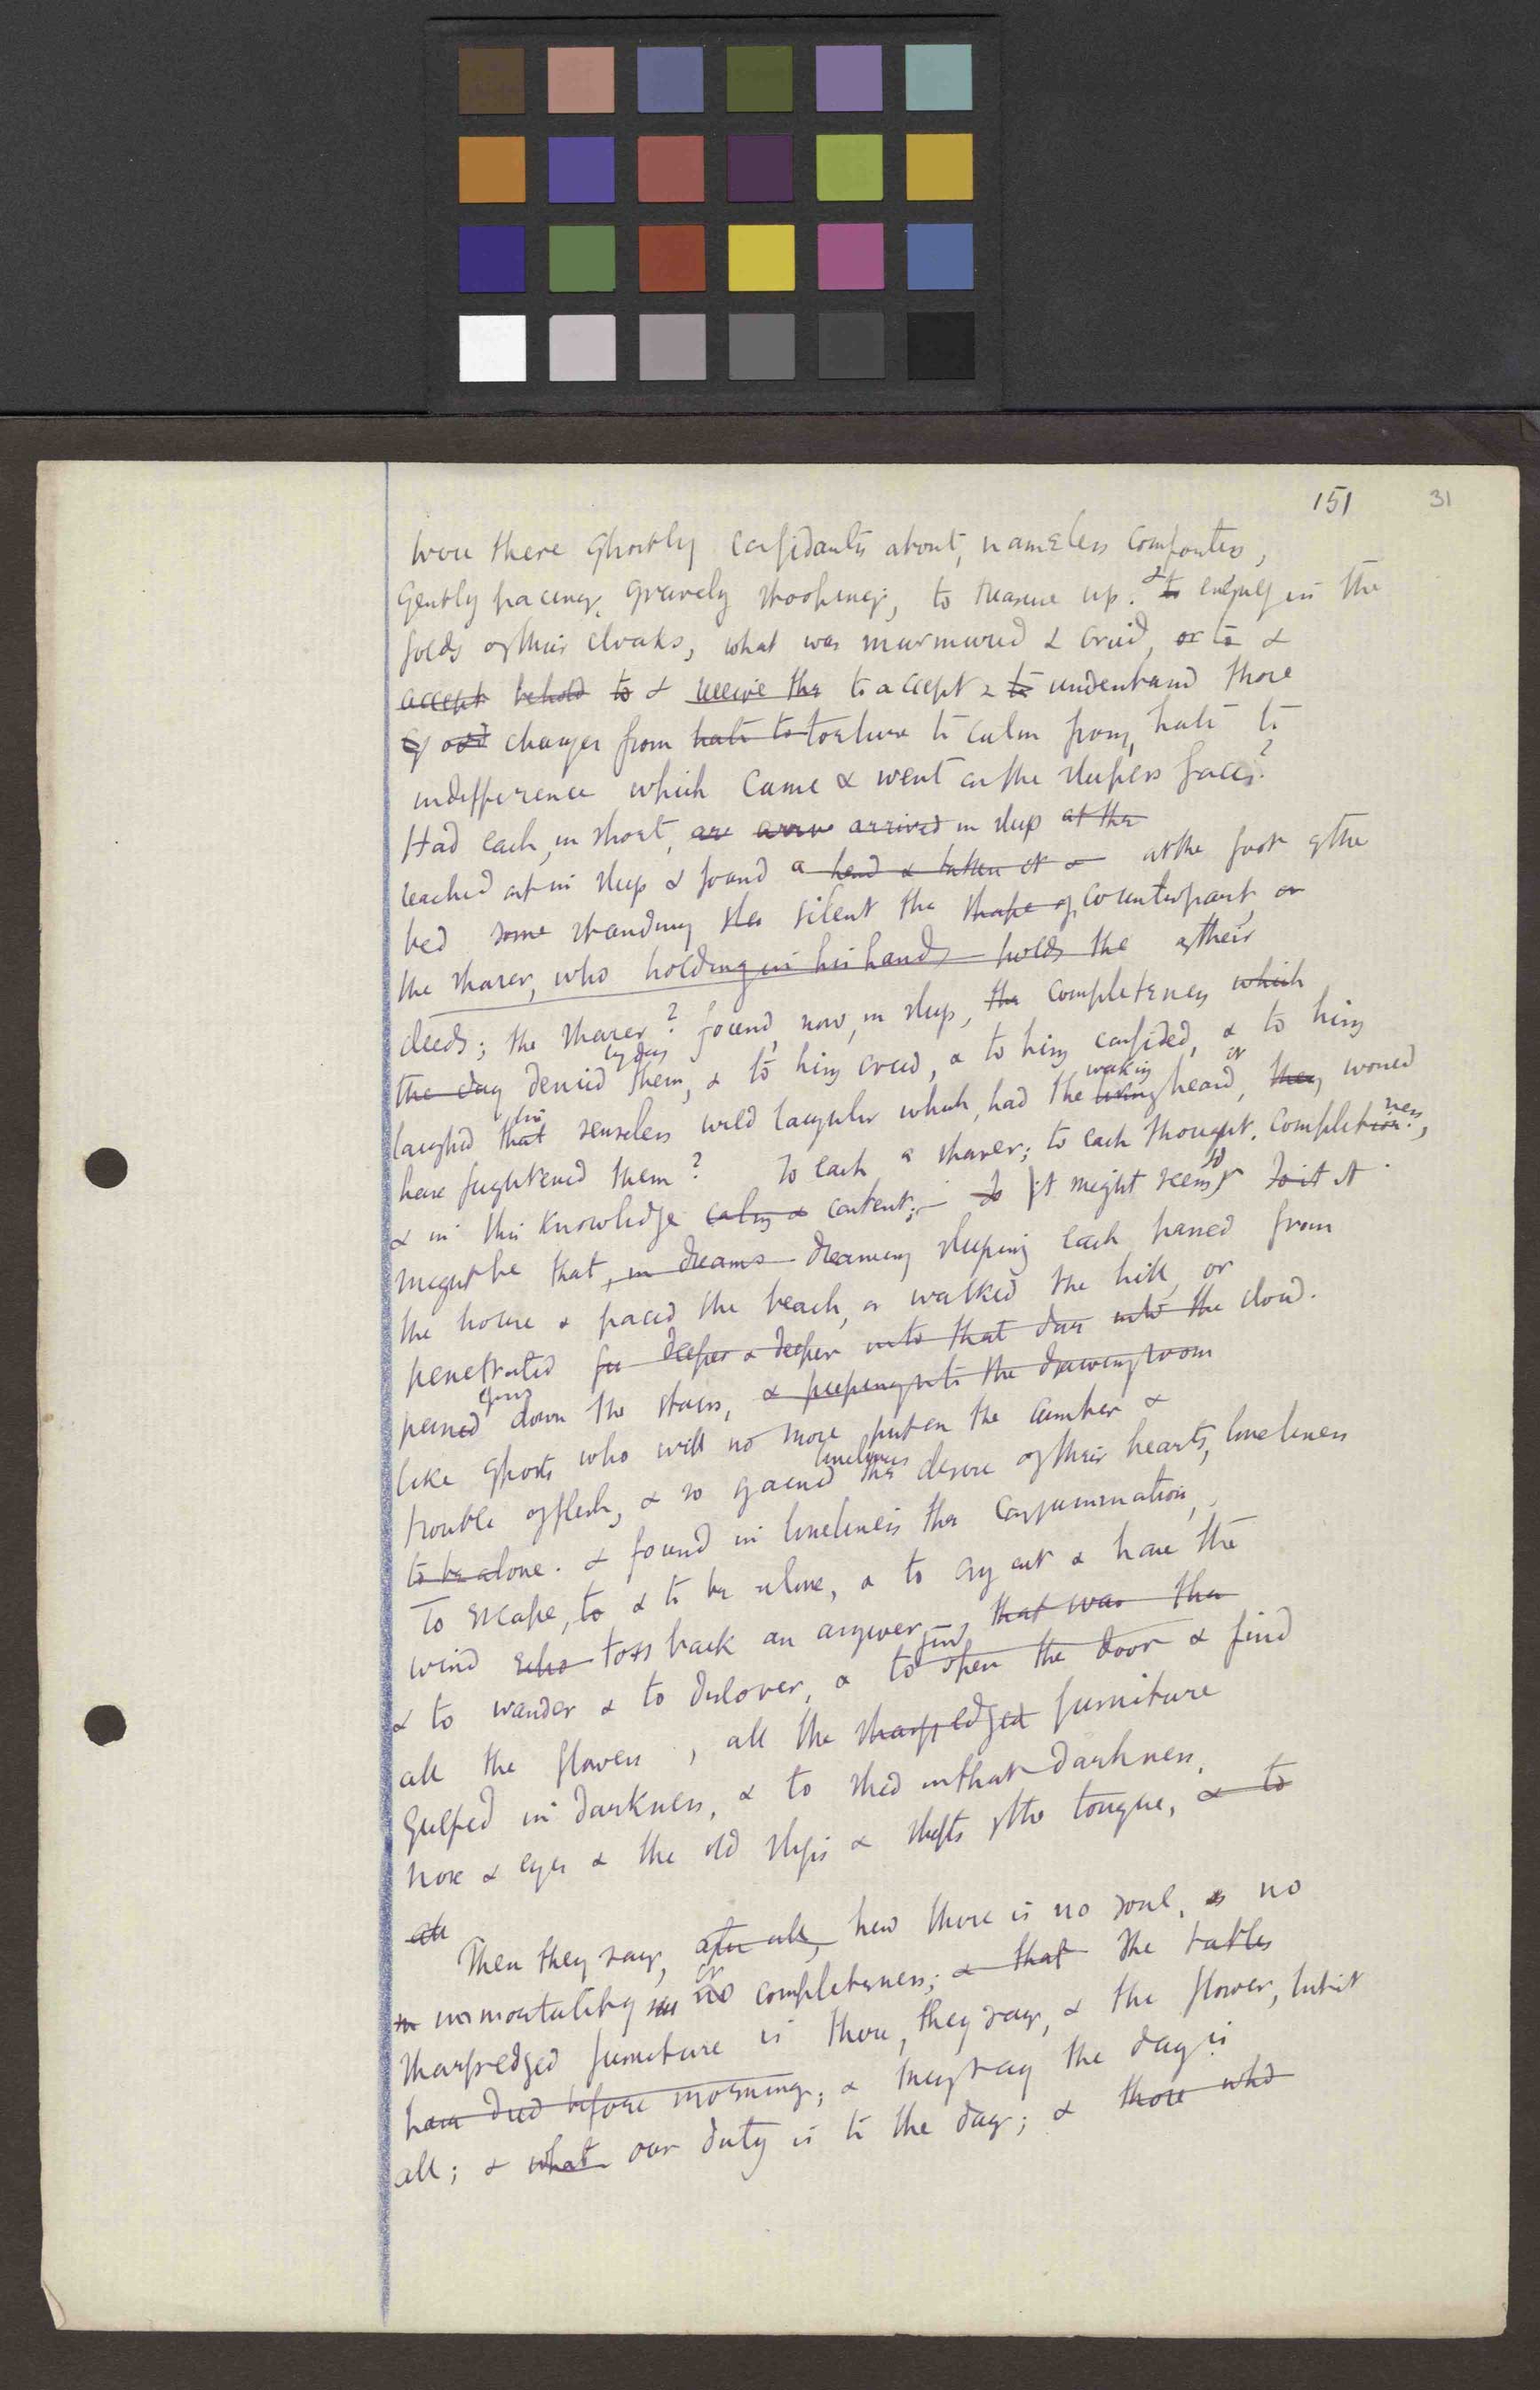 151 31
Were there ghostly confidants about, nameless comforters,
gently pacing, gravely stooping, to treasure up. & to engulf in the
folds of their cloaks, what was murmured & cried, or to &
accept behold to & receive the to accept & to understand those
of odd changes from hate to torture to calm from, hate to
indifference which came & went on the sleepers faces?
Had each, in short, are arriv arrived in sleep at the
reached out in sleep & found a hand & taken it & at the foot of the
bed some standing silent the shape of counterpart, or
the sharer, who holding in his hands holds the of their
deeds; the sharer? found, now, in sleep, the completeness which
the day denied by day them, & to him cried, & to him confided, & to him
laughed that senseless wild laughter which, had the living waking heard, or they would
have frightened them? To each a sharer; to each thought, completion. ness,
& in this knowledge calm & content; – So it might seem, so To it it
might be that, in dreams dreaming sleeping each passed from
the house & paced the beach, or walked the hill or
penetrated deeper & deeper into that into the cloud.
down the stairs, & peeping into the drawing room
like ghosts who will no more put on the cumber &
trouble of flesh, & so gained loneliness the desire of their hearts, loneliness
to be alone. & found in loneliness the consummation,
To escape, to & to be alone, & to cry out & have the
wind echo toss back an answer, that was the
& to wander & to discover, & to find open the door & find
all the flowers, all the sharp edged furniture
gulfed in darkness, & to shed in that darkness,
nose & eyes & the old slips & shifts of the tongue, & to
all
Then they say, after all, how there is no soul, no
immortality or no completeness; & that the tables
sharpedged furniture is there, they say, & the flower, but it
have died before morning; & they say the day is
all; & what our duty is to the day; & those who